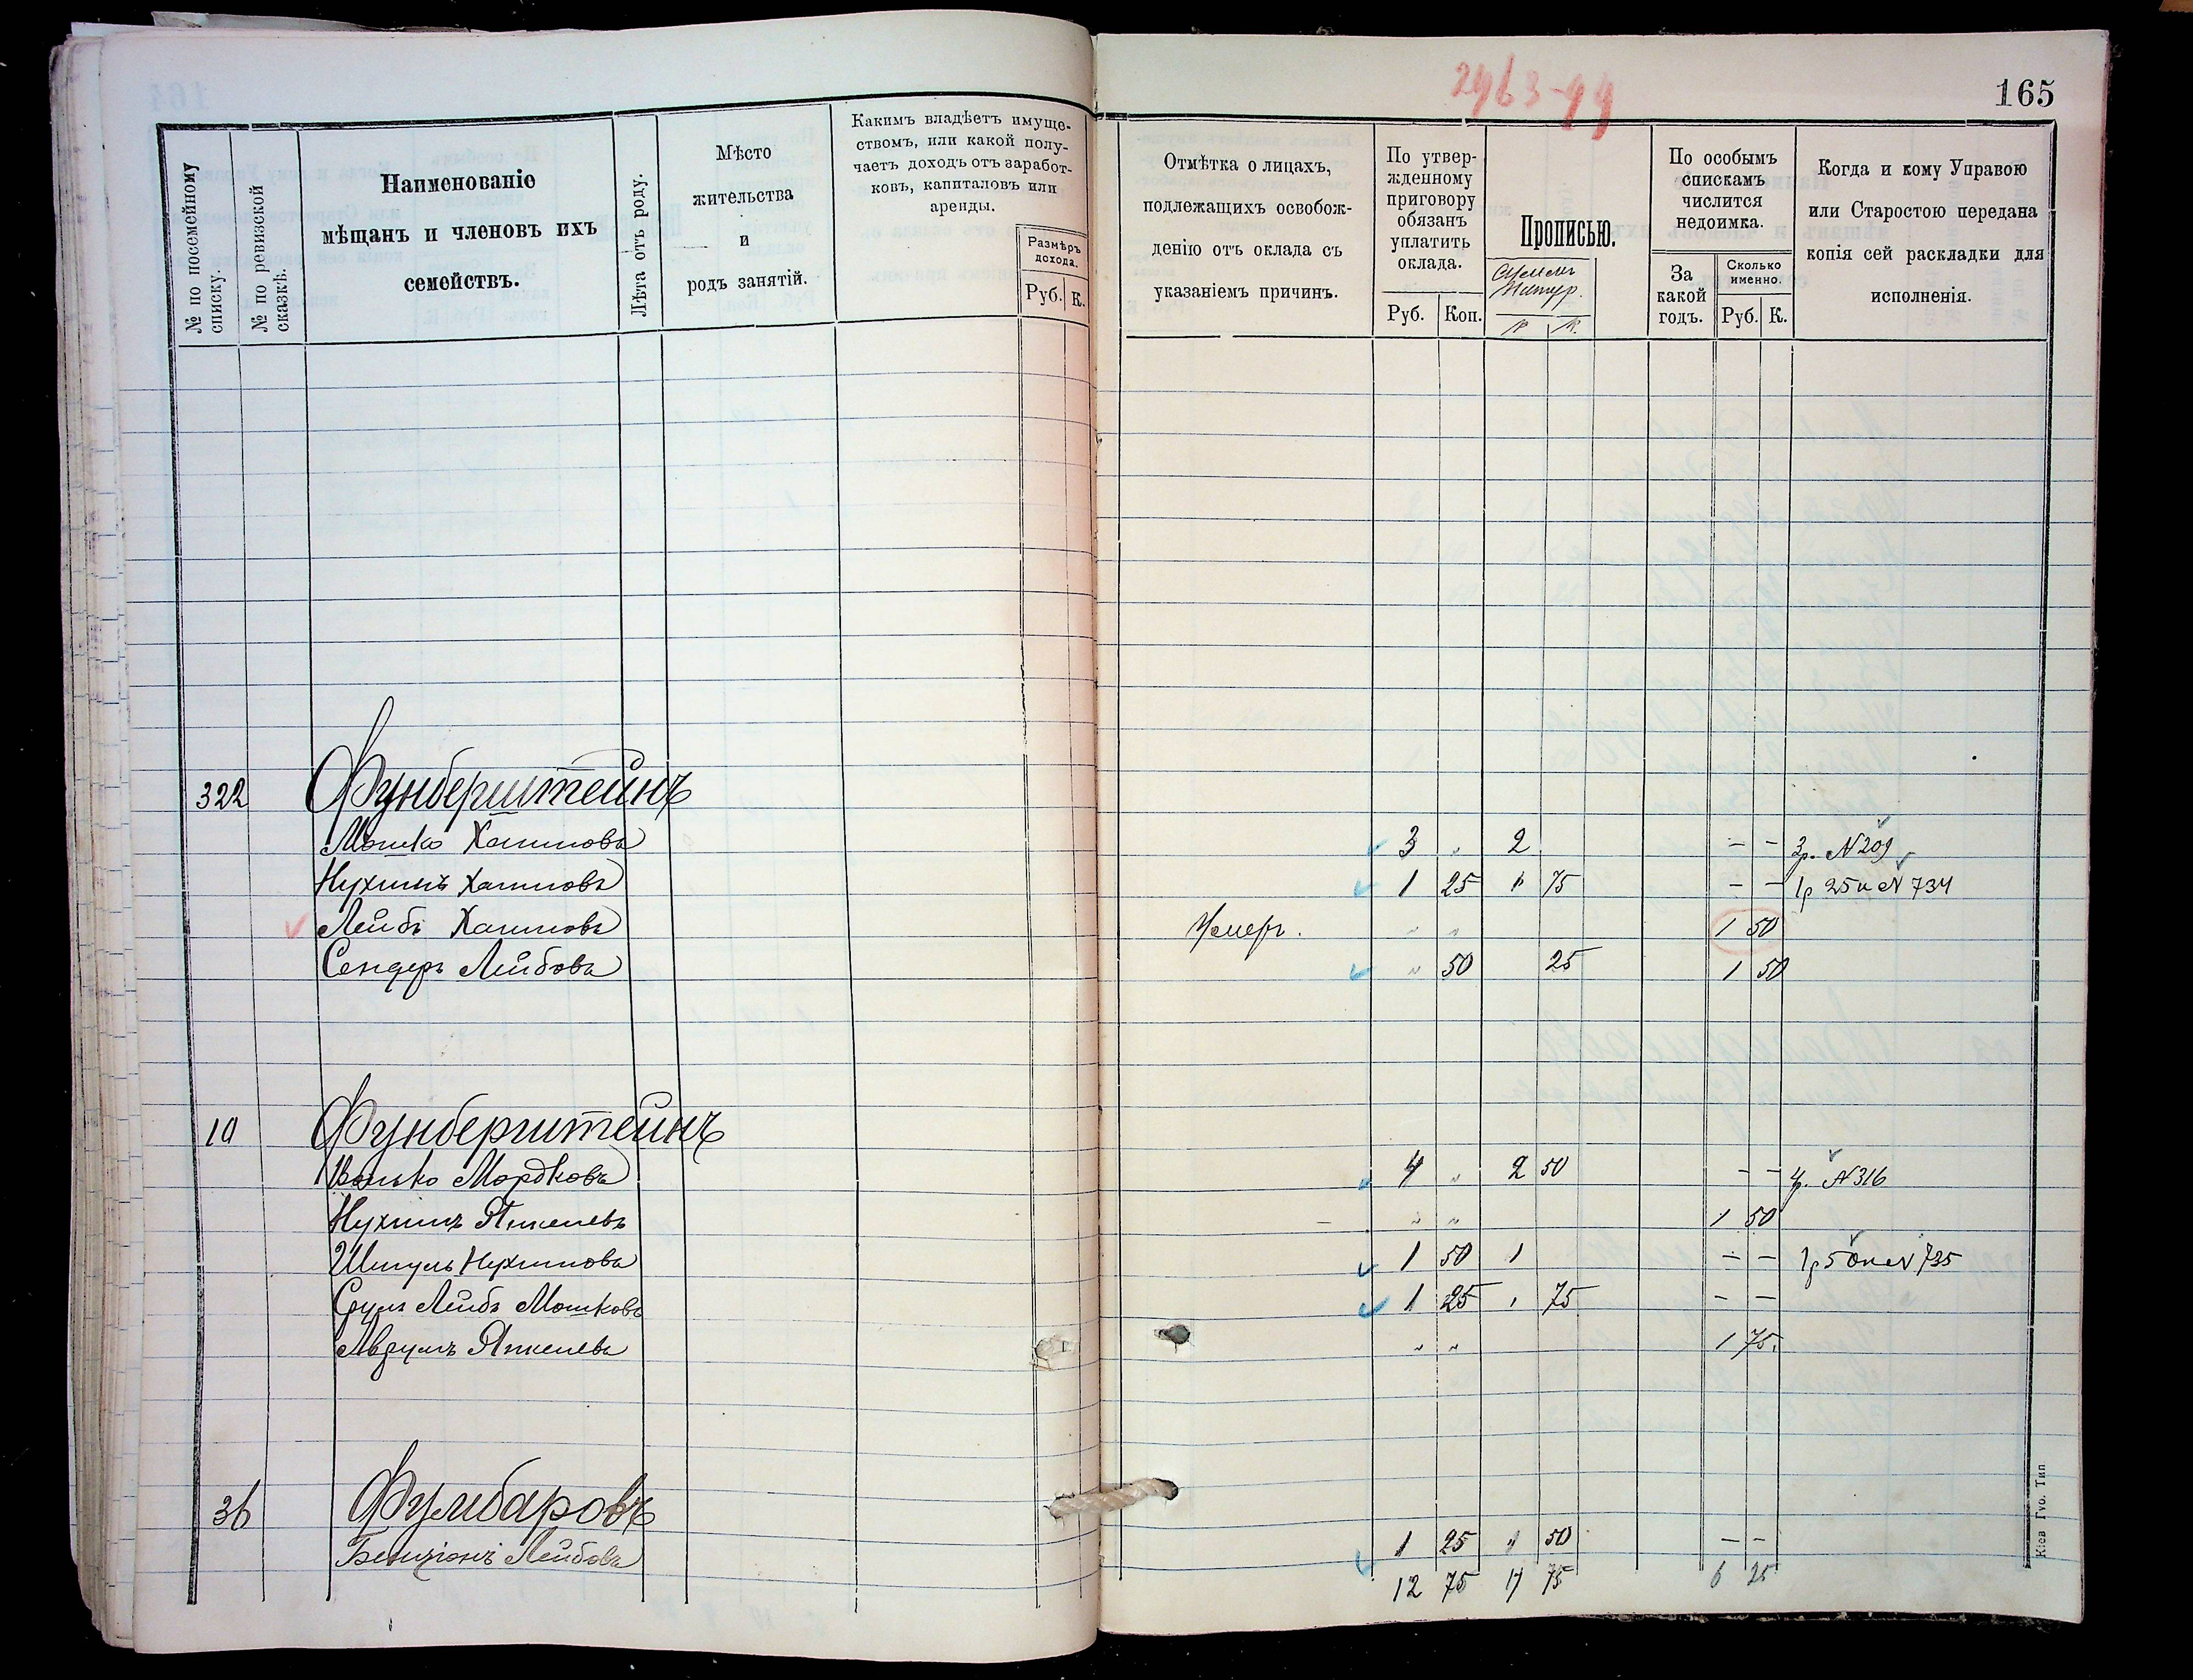 165
№ по посемейному списку.
№ по ревизской сказкѣ.
Наименованіе мѣщанъ и членовъ ихъ семействъ.
Лѣта отъ роду.
Мѣсто жительства и родъ занятій.
Какимъ владѣетъ имуществомъ, или какой получаетъ доходъ отъ заработковъ, капиталовъ или аренды.
Размѣръ дохода.
Руб. К.
Отмѣтка о лицахъ, подлежащихъ освобожденію отъ оклада съ указаніемъ причинъ.
По утвержденному приговору обязанъ уплатить оклада.
Руб. Коп.
Прописью.
По особымъ спискамъ числится недоимка.
За какой годъ.
Сколько именно.
Руб. К.
Когда и кому Управою или Старостою передана копія сей раскладки для исполненія.
322 Фунберштейнъ
Мошко Хаимовъ 3 „ 2 – – 3р. N 209
Нухимъ Хаимовъ 1 25 „ 75 – – 1р 25к N 734
Лейбъ Хаимовъ Умеръ. „ „ 1 50
Сендеръ Лейбовъ „ 50 25 1 50
10 Фунберштейнъ
Волько Мордковъ 4 „ 2 50 – – 4р. N 316
Нухимъ Янкелевъ „ „ 1 50
Шмуль Нухимовъ 1 50 1 – – 1р 50к N 735
Сруль Лейбъ Мошковъ 1 25 „ 75 – –
Аврумъ Янкелевъ „ „ 1 75.
36 Фумбаровъ
Бенціонъ Лейбовъ 1 25 „ 50 – –
12 75 7 75 6 25
Кіев Губ. Тип